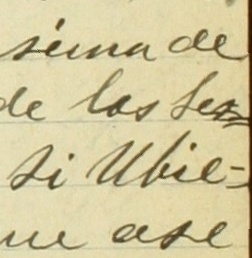 sima de
de los Ser=
si Ubie=
ue ase